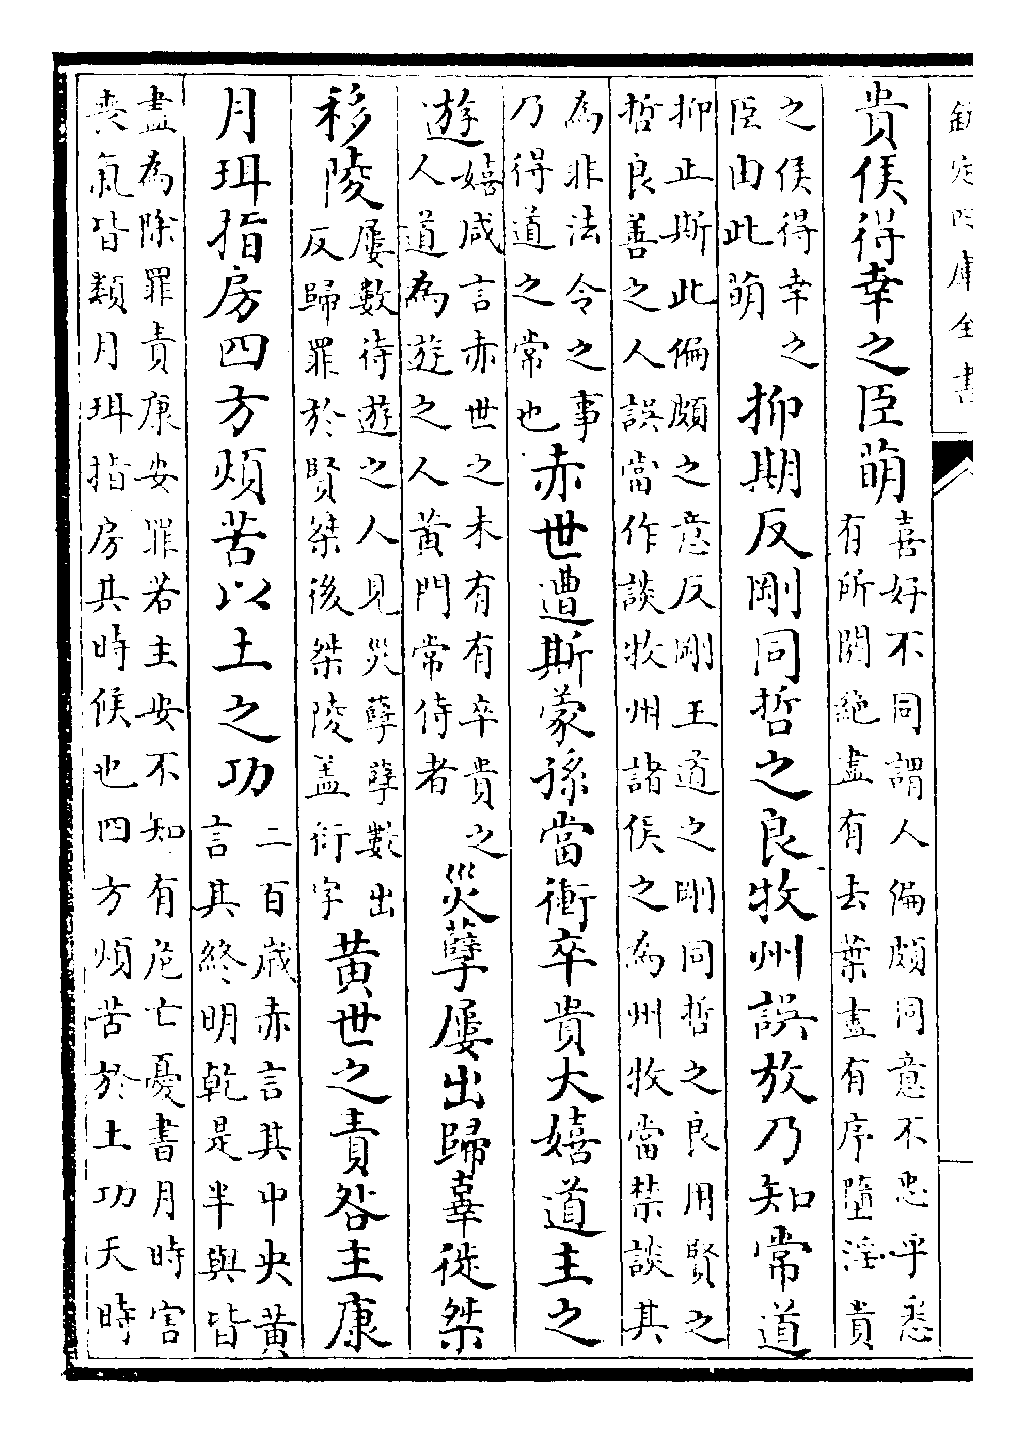 欽定四庫全書
貴侯得幸之臣萌
喜好不同謂人偏頗同意不忠乎悉
有所闕絶盡有去葉盡有序墮淫貴
之侯得幸之
臣由此萌
抑期反剛同哲之良牧州誤放乃知常道
抑止斯此偏頗之意反剛王道之剛同哲之良用賢之
哲良善之人誤當作談牧州諸侯之為州牧當禁談其
為非法令之事
乃得道之常也
赤世遭斯蒙孫當衝卒貴大嬉道主之
遊
嬉咸言赤世之未有有卒貴之
人道為遊之人黄門常侍者
災孽屢出歸辜徙桀
移陵
屢數待遊之人見災孽孽數出
反歸罪於賢桀後桀陵盖衍字
黄世之責咎主康
月珥指房四方煩苦以土之功
二百歳赤言其中央黄
言其終明乾是半與皆
盡為除罪責康安罪若主安不知有危亡憂書月時害
喪氣皆類月珥指房其時候也四方煩苦於土功天時